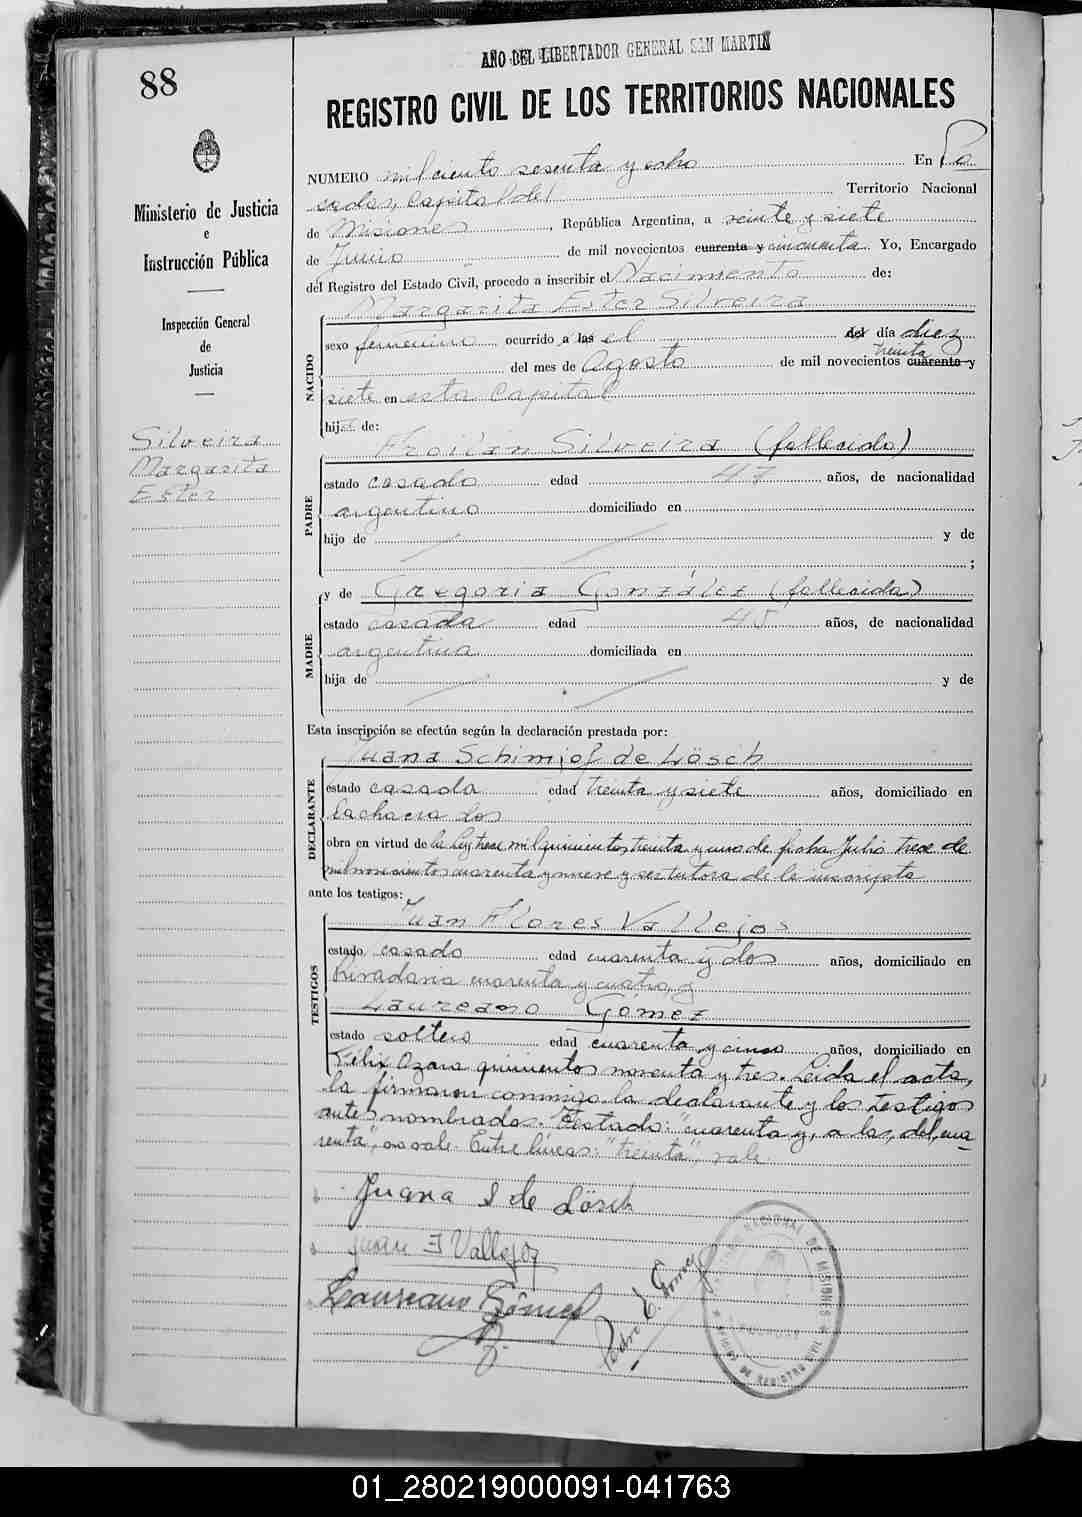 AÑO DEL LIBERTADOR GENERAL SAN MARTIN
88
REGISTRO CIVIL DE LOS TERRITORIOS NACIONALES
Ministerio de Justicia
e
Instrucción Pública
Inspección General
de
Justicia
Silveira
Margarita
Ester
NUMERO mil ciento sesenta y ocho En Po
sadas, Capital del Territorio Nacional
de Misiones, República Argentina, a veinte y siete
de Junio de mil novecientos cuarenta y cincuenta Yo, Encargado
del Registro del Estado Civil, procedo a inscribir el Nacimiento de:
Margarita Ester Silveira
NACIDO
sexo femenino ocurrido a las el del día diez
treinta
del mes de Agosto de mil novecientos cuarenta y
siete en esta Capital
hija de:
PADRE
Froilán Silveira (fallecido)
estado casado edad 47 años, de nacionalidad
argentino domiciliado en
hijo de y de
;
MADRE
y de Gregoria González (fallecida)
estado casada edad 45 años, de nacionalidad
argentina domiciliada en
hija de y de
Esta inscripción se efectúa según la declaración prestada por:
DECLARANTE
Juana de Lösch
estado casada edad treinta y siete años, domiciliado en
la chacra dos
obra en virtud de la Ley trece mil quinientos treinta y uno de fecha Julio trece de
mil novecientos cuarenta y nueve y ser tutora de la inscripta
ante los testigos:
TESTIGOS
Juan Flores Vallejos
estado casado edad cuarenta y dos años, domiciliado en
Rivadavia cuarenta y cuatro, y
Laureano Gómez
estado soltero edad cuarenta y cinco años, domiciliado en
Félix Azara quinientos noventa y tres. Leida el acta,
la firmaron conmigo la declarante y los testigos
antes nombrados. Testado: "cuarenta y, a las, del, cua
renta", no vale. Entre líneas: "treinta", vale.
Juana S de Lösch
Juan F Vallejos
Laureano Gómez
Pedro E. Gomez
REGISTRO CIVIL
NACIONAL DE MISIONES
POSADAS
01_280219000091-041763